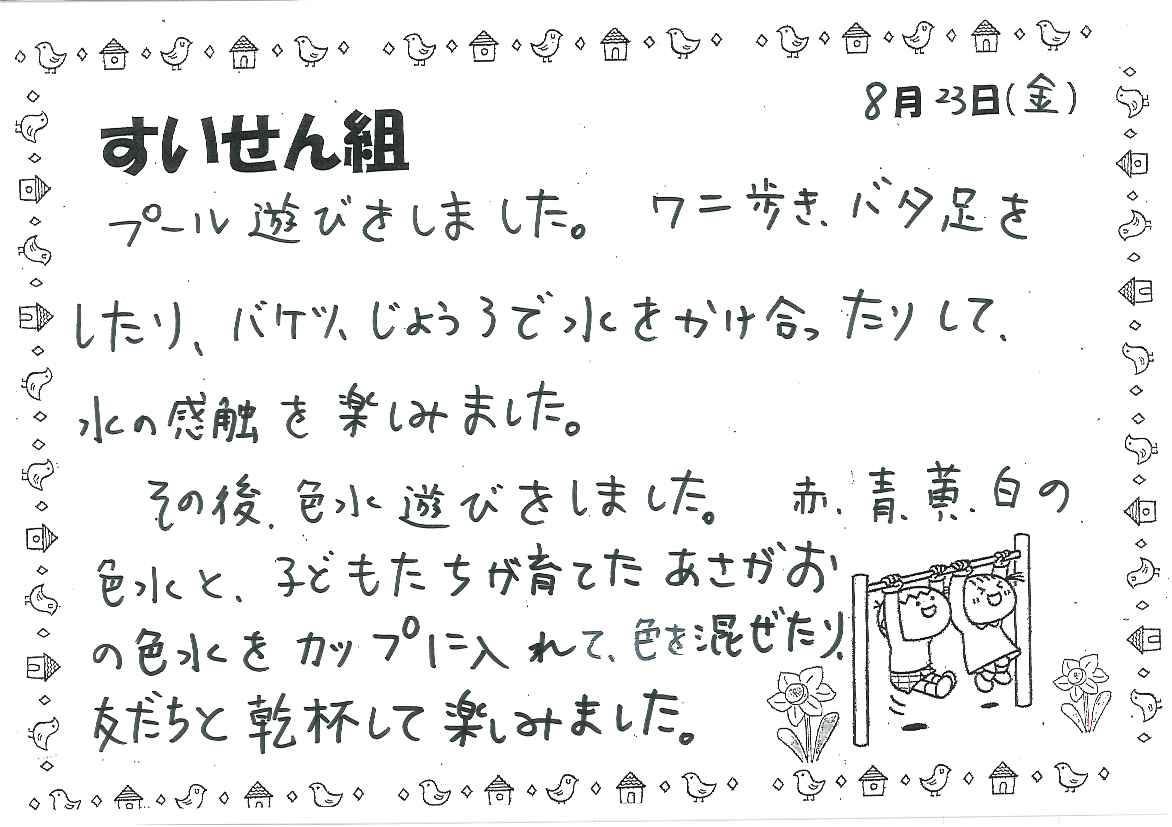 8月23日(金)
すいせん組
プール遊びをしました。 ワニ歩き、バタ足を
したり、バケツ、じょうろで水をかけ合ったりして、
水の感触を楽しみました。
その後、色水遊びをしました。 赤、青、黄、白の
色水と、子どもたちが育てたあさがお
の色水をカップに入れて、色を混ぜたり、
友だちと乾杯して楽しみました。